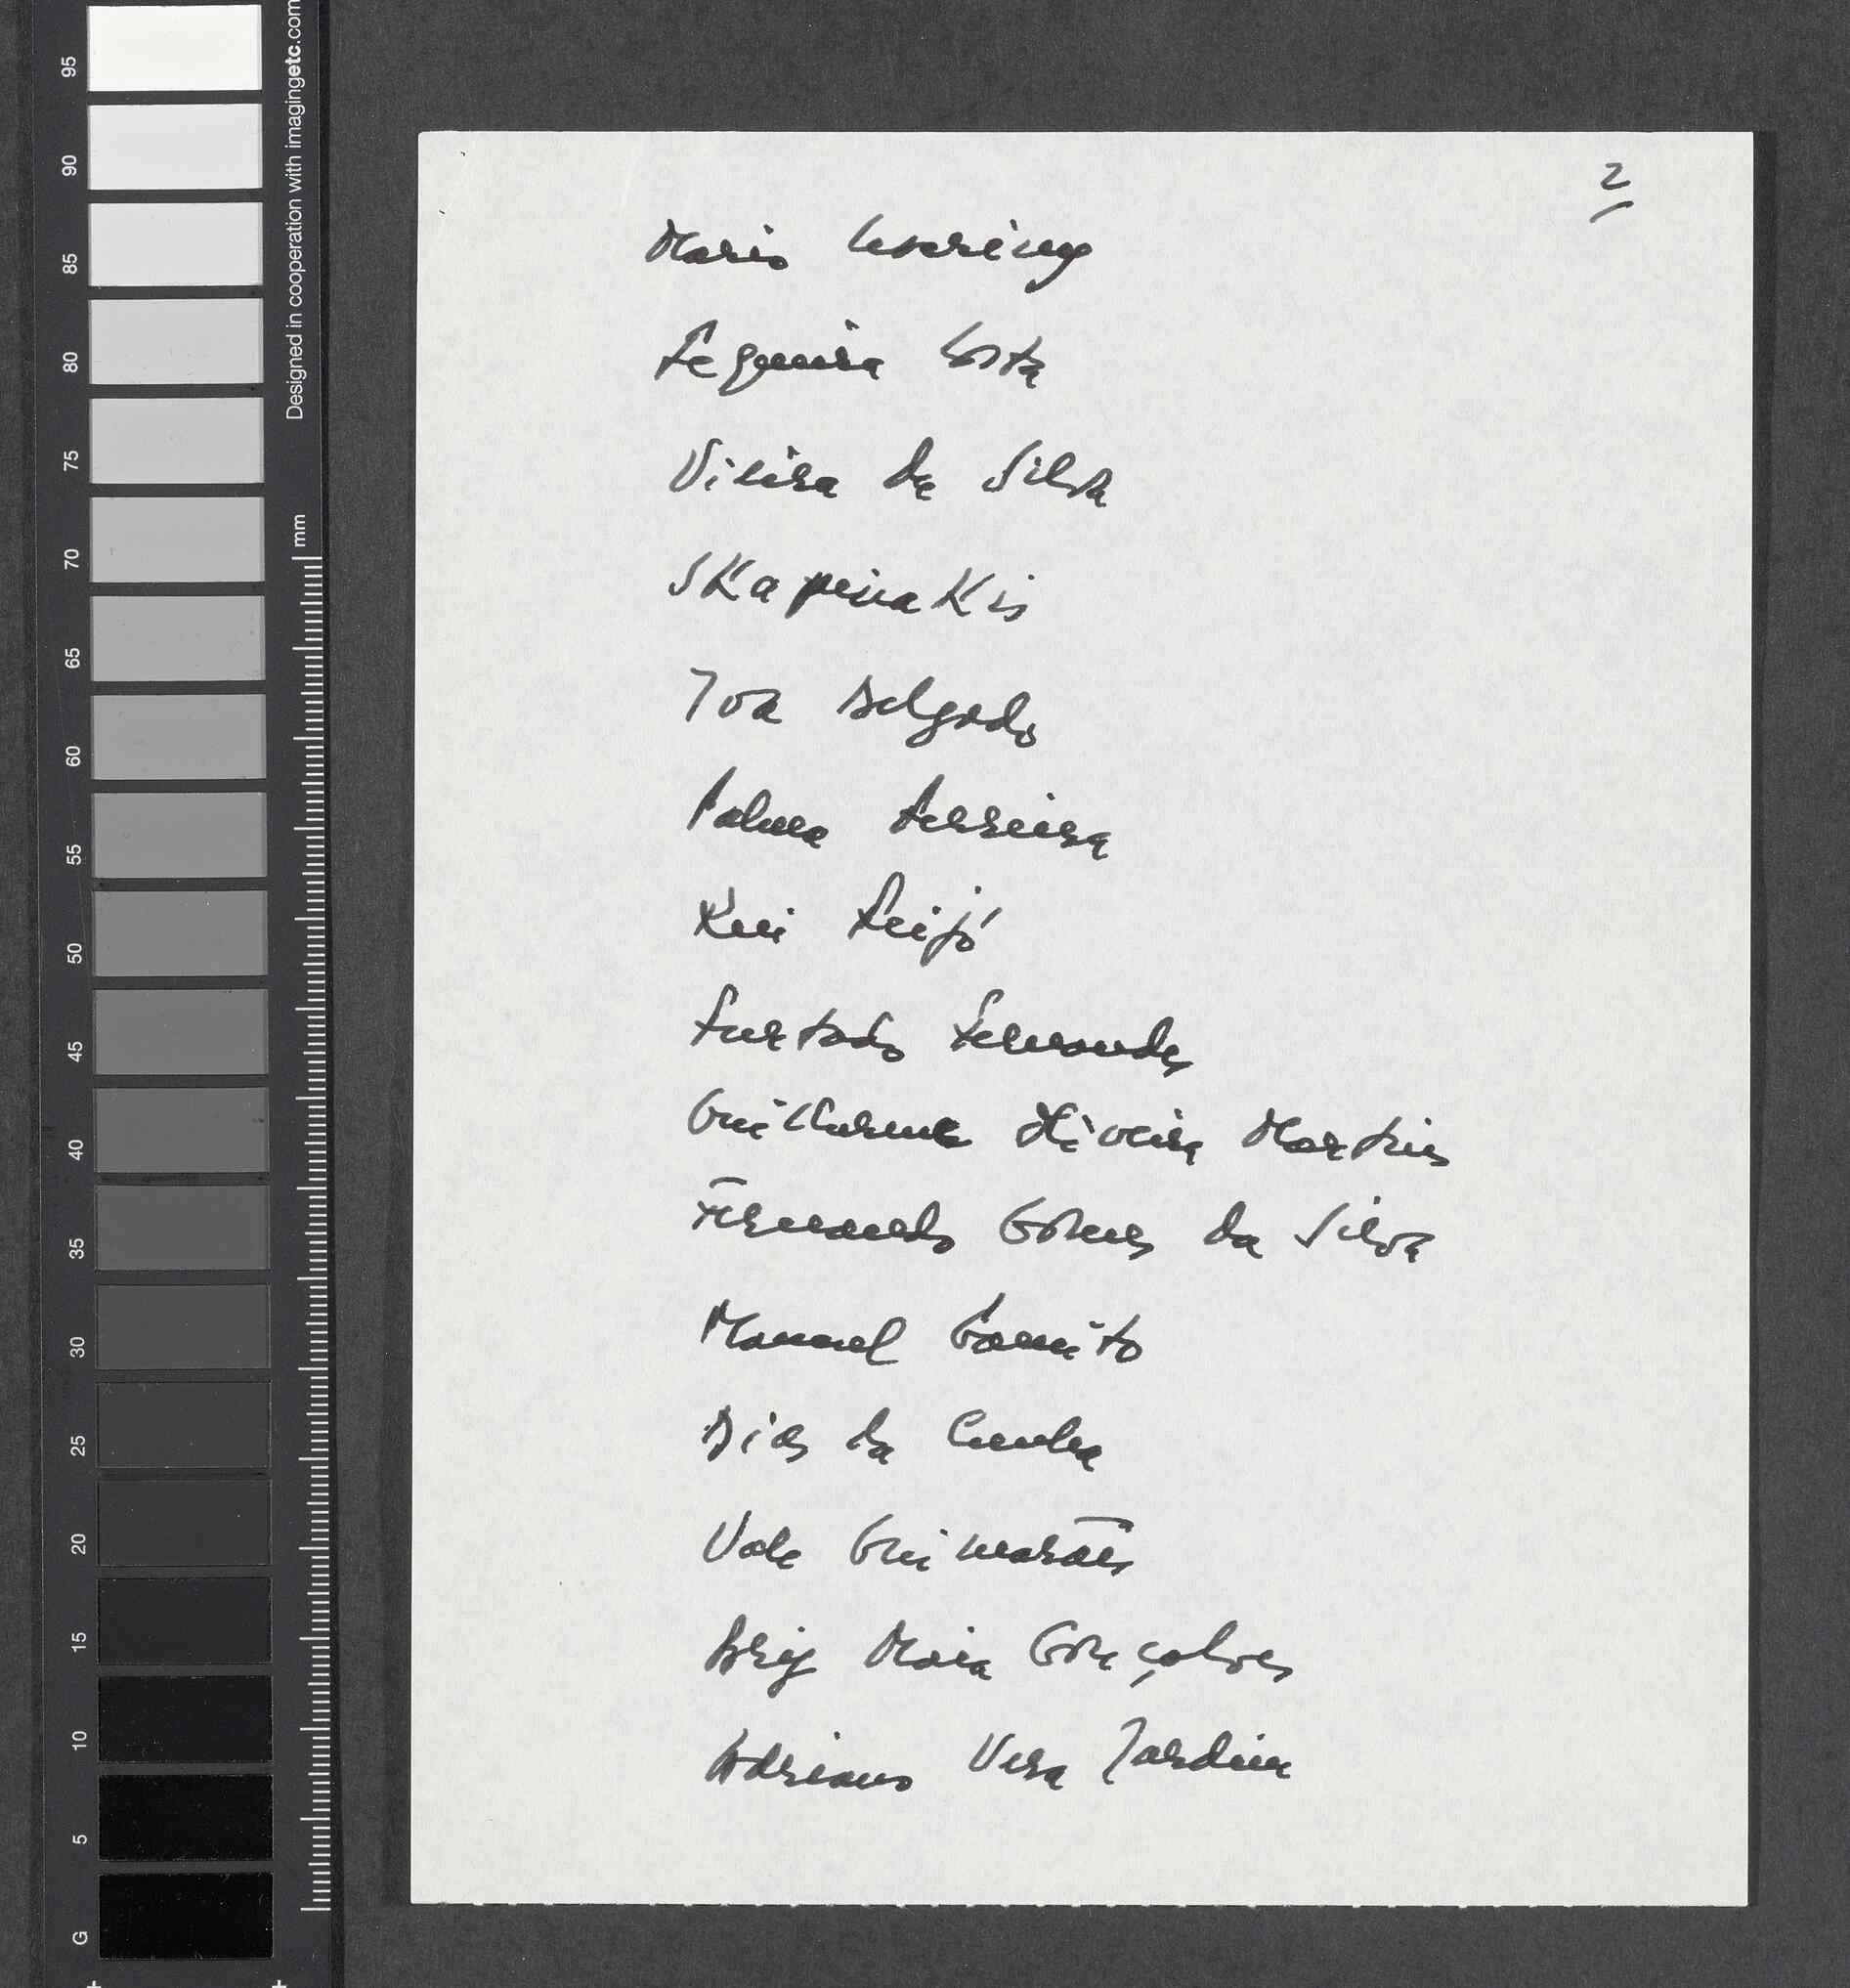 95
90
85
80
75
70
65
60
55
50
45
40
35
30
25
20
15
10
5
G
Designed in cooperation with imagingetc.com
mm
2
Mário
Costa
Vieira da Silva
Skapinakis
Iva Delgado
Palma Ferreira
Rui Feijó
Furtado Fernandes
Guilherme Oliveira Martins
Fernando Gomes da Silva
Manuel Gamito
Dias da Cunha
Vale Guimarães
Brig Maia Gonçalves
Adriano Vera Jardim